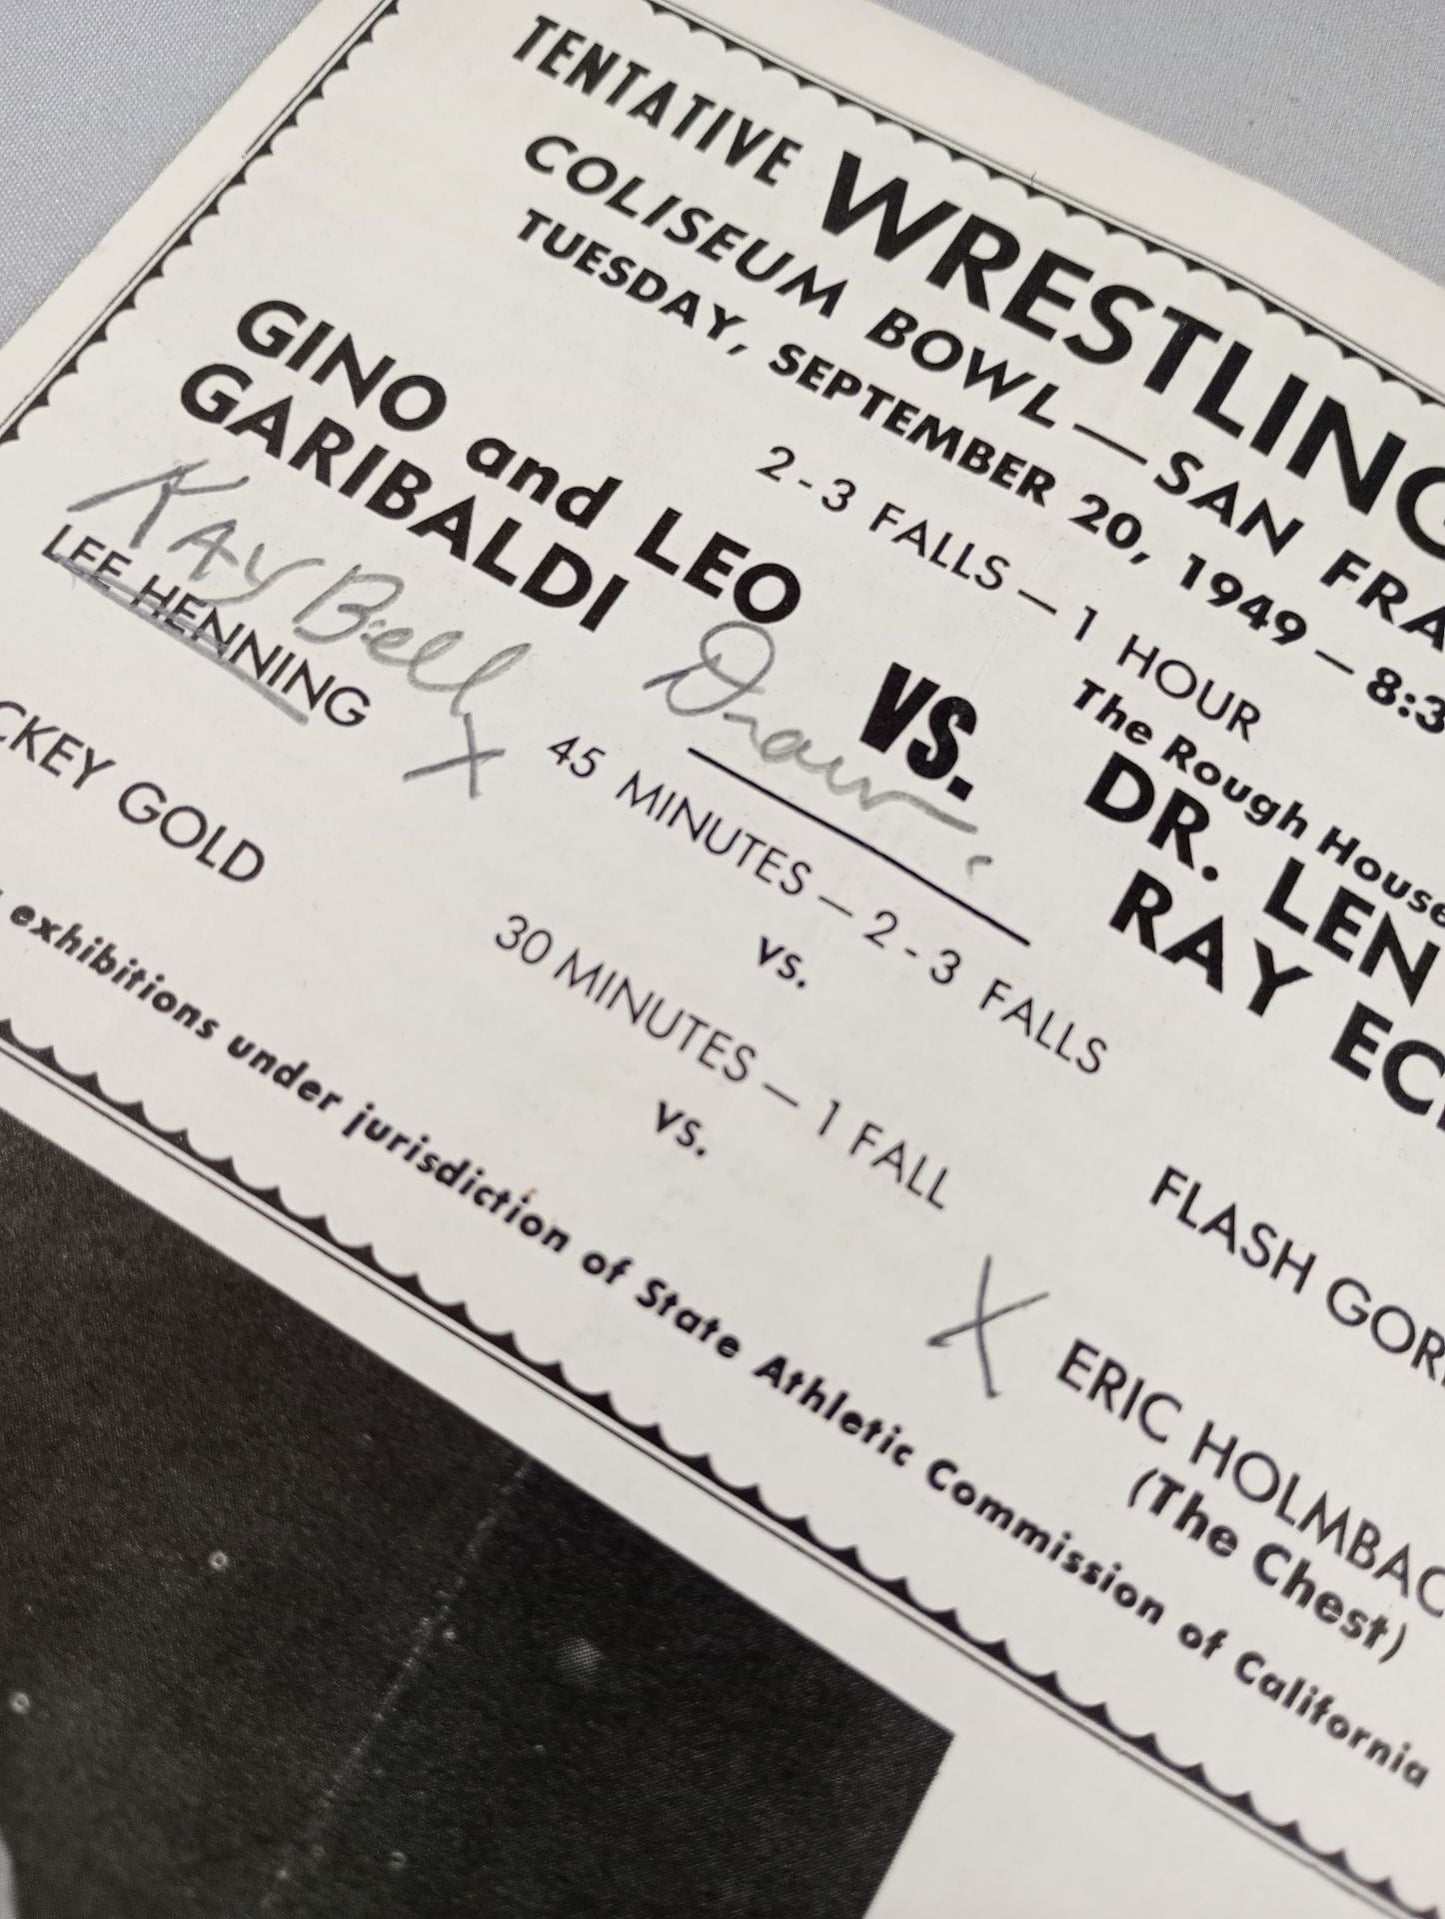 TENTATIVE WRESTLING
COLISEUM BOWL—SAN FRA
TUESDAY, SEPTEMBER 20, 1949 – 8:3
2-3 FALLS – 1 HOUR
GINO and LEO
GARIBALDI
VS.
The Rough House
DR. LEN
RAY EC
Draw.
Kay Bell
X
45 MINUTES – 2-3 FALLS
LEE HENNING
vs.
FLASH GOR
30 MINUTES – 1 FALL
CKEY GOLD
vs.
X
ERIC HOLMBAC
(The Chest)
exhibitions under jurisdiction of State Athletic Commission of California